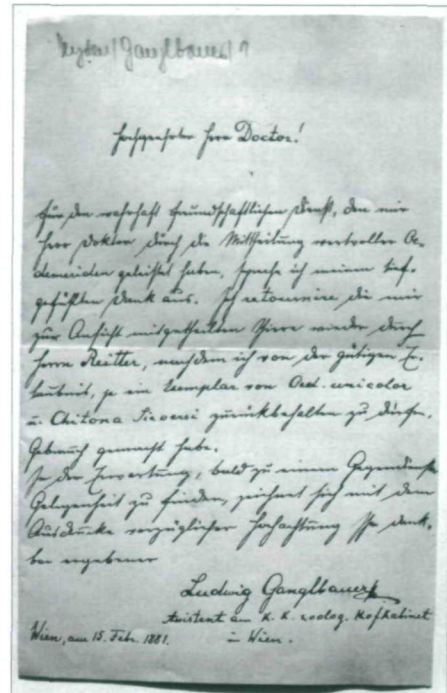 Heyden/Ganglbauer/1
Hochgeehrter Herr Doctor!
Für den wahrhaft freundschaftlichen Dienst, den mir
Herr Doktor durch die Mittheilung wertvoller Oe-
demeriden geleistet haben, spreche ich meinen tief-
gefühlten Dank aus. Ich retournire die mir
zur Ansicht mitgetheilten Thiere wieder durch
Herrn Reitter, nachdem ich von der gütigen Er-
laubnis, je ein Exemplar von Oed. unicolor
u. Chitona Sieversi zurückbehalten zu dürfen,
Gebrauch gemacht habe.
In der Erwartung, bald zu einem Gegendienste
Gelegenheit zu finden, zeichnet sich mit dem
Ausdrucke vorzüglicher Hochachtung Ihr dank-
bar ergebener
Ludwig Ganglbauer
Assistent am K. K. zoolog. Hofkabinet
Wien, am 15. Febr. 1881. in Wien.